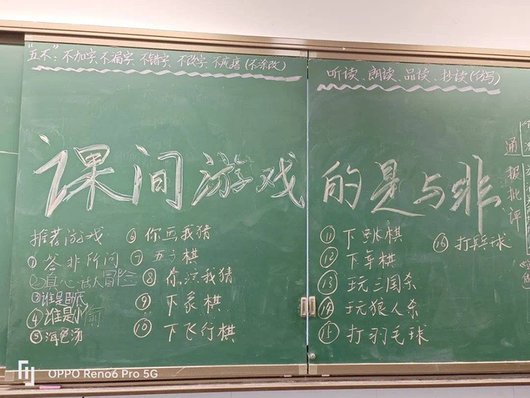 "五不":不加字、不漏字、不错字、不改字、不
听读、朗读、品读、抄读
通报批评
课间游戏的是与非
推荐游戏
①答非所问
②真心话大冒险
③谁是卧底
④谁是
⑤海龟汤
⑥你画我猜
⑦五子棋
⑧你演我猜
⑨下象棋
⑩下飞行棋
⑪下跳棋
⑫下军棋
⑬玩三国杀
⑭玩狼人杀
⑮打羽毛球
⑯打乒乓球
OPPO Reno6 Pro 5G